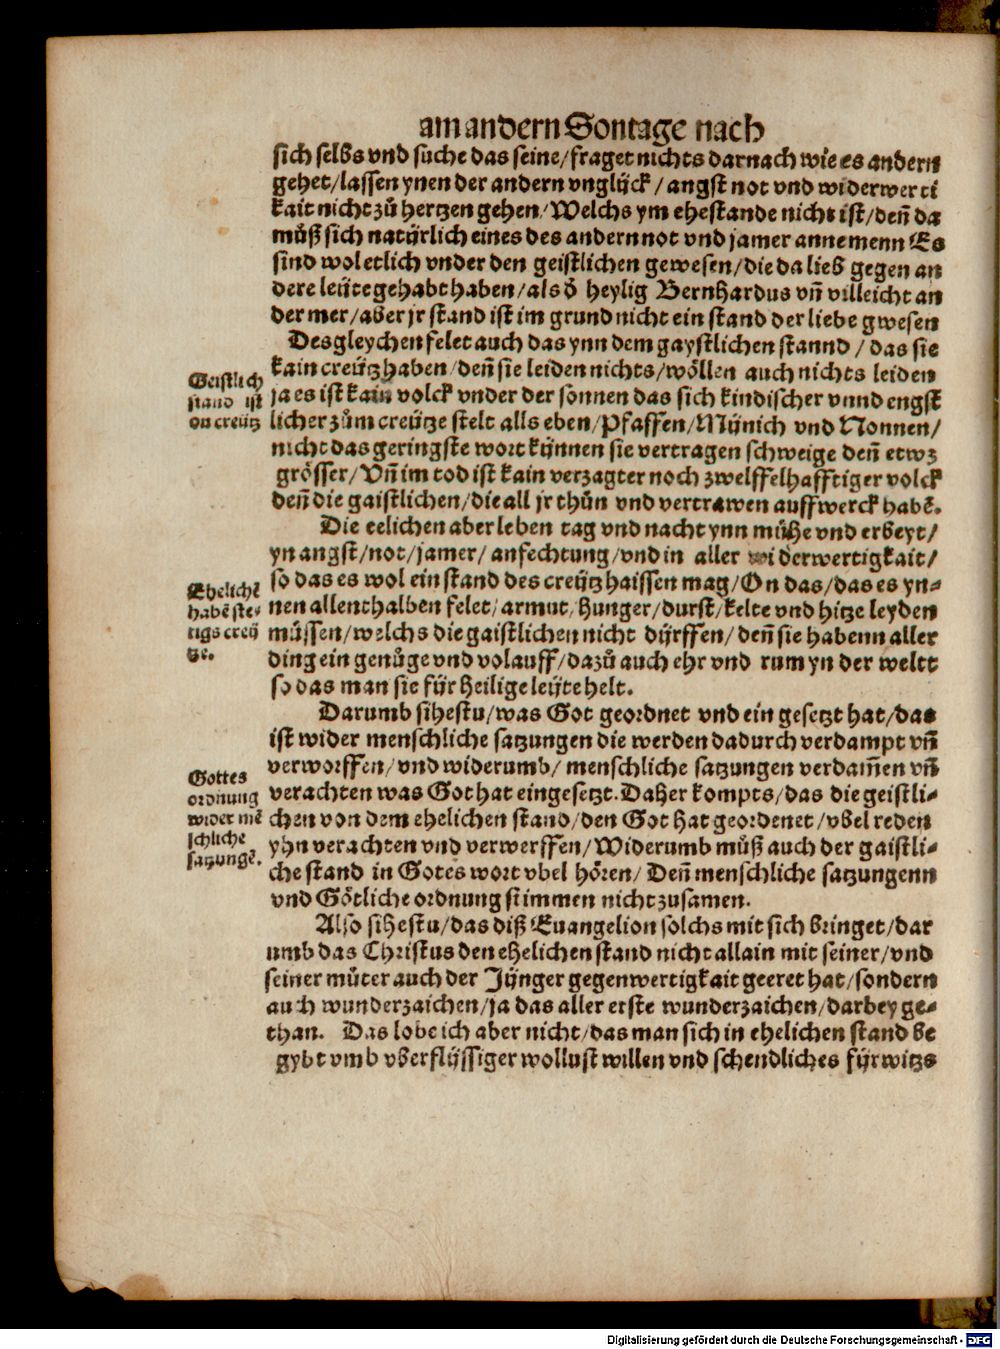 am andern Sontage nach
sich selbs vnd suche das seine/fraget nichts darnach wie es andern
gehet/lassen ynen der andern vnglyͤck/angst not vnd widerwerti
kait nicht zuͦ hertzen gehen/Welchs ym ehestande nicht ist/deñ da
muͦß sich natyͤrlich eines des andern not vnd jamer annemenn Es
sind wol etlich vnder den geistlichen gewesen/die da lieb gegen an
dere leuͤte gehabt haben/als d̕ heylig Bernhardus vñ villeicht an
der mer/aber jr stand ist im grund nicht ein stand der liebe gwesen
Desgleychen felet auch das ynn dem gaystlichen stannd/das sie
kain creuͤtz haben/deñ sie leiden nichts/woͤllen auch nichts leiden
ja es ist kain volck vnder der sonnen das sich kindischer vnnd engst
licher zuͦm creuͤtze stelt alls eben/Pfaffen/Myͤnich vnd Nonnen/
nicht das geringste wort kyͤnnen sie vertragen schweige deñ etwz
groͤsser/Vñ im tod ist kain verzagter noch zwelffelhafftiger volck
deñ die gaistlichen/die all jr thuͦn vnd vertrawen auff werck habẽ.
Die eelichen aber leben tag vnd nacht ynn muͤhe vnd erbeyt/
yn angst/not/jamer/anfechtung/vnd in aller widerwertigkait/
so das es wol ein stand des creuͤtz haissen mag/On das/das es yn-
nen allenthalben felet/armut/hunger/durst/kelte vnd hitze leyden
muͤssen/welchs die gaistlichen nicht dyͤrffen/deñ sie habenn aller
ding ein genuͦge vnd volauff/dazuͦ auch ehr vnd rum yn der weltt
so das man sie fyͤr heilige leuͤte helt.
Darumb sihestu/was Got geordnet vnd ein gesetzt hat/das
ist wider menschliche satzungen die werden dadurch verdampt vñ
verworffen/vnd widerumb/menschliche satzungen verdam̃en vñ
verachten was Got hat eingesetzt. Daher kompts/das die geistli-
chen von dem ehelichen stand/den Got hat geordenet/vbel reden
yhn verachten vnd verwerffen/Widerumb muͦß auch der gaistli-
che stand in Gotes wort vbel hoͤren/Deñ menschliche satzungenn
vnd Goͤtliche ordnung stimmen nicht zusamen.
Also sihestu/das diß Euangelion solchs mit sich bringet/dar
umb das Christus den ehelichen stand nicht allain mit seiner/vnd
seiner muͤter auch der Jyͤnger gegenwertigkait geeret hat/sondern
auch wunderzaichen/ja das aller erste wunderzaichen/darbey ge-
than. Das lobe ich aber nicht/das man sich in ehelichen stand be
gybt vmb vberflyͤssiger wollust willen vnd schendliches fyͤrwitzs
Geistlich
stand ist
on creuͤtz
Ehelichẽ
habẽ ste-
tigs creuͤ
tze.
Gottes
ordnung
wider mẽ
schliche
satzungẽ.
Digitalisierung gefördert durch die Deutsche Forschungsgemeinschaft - DFG